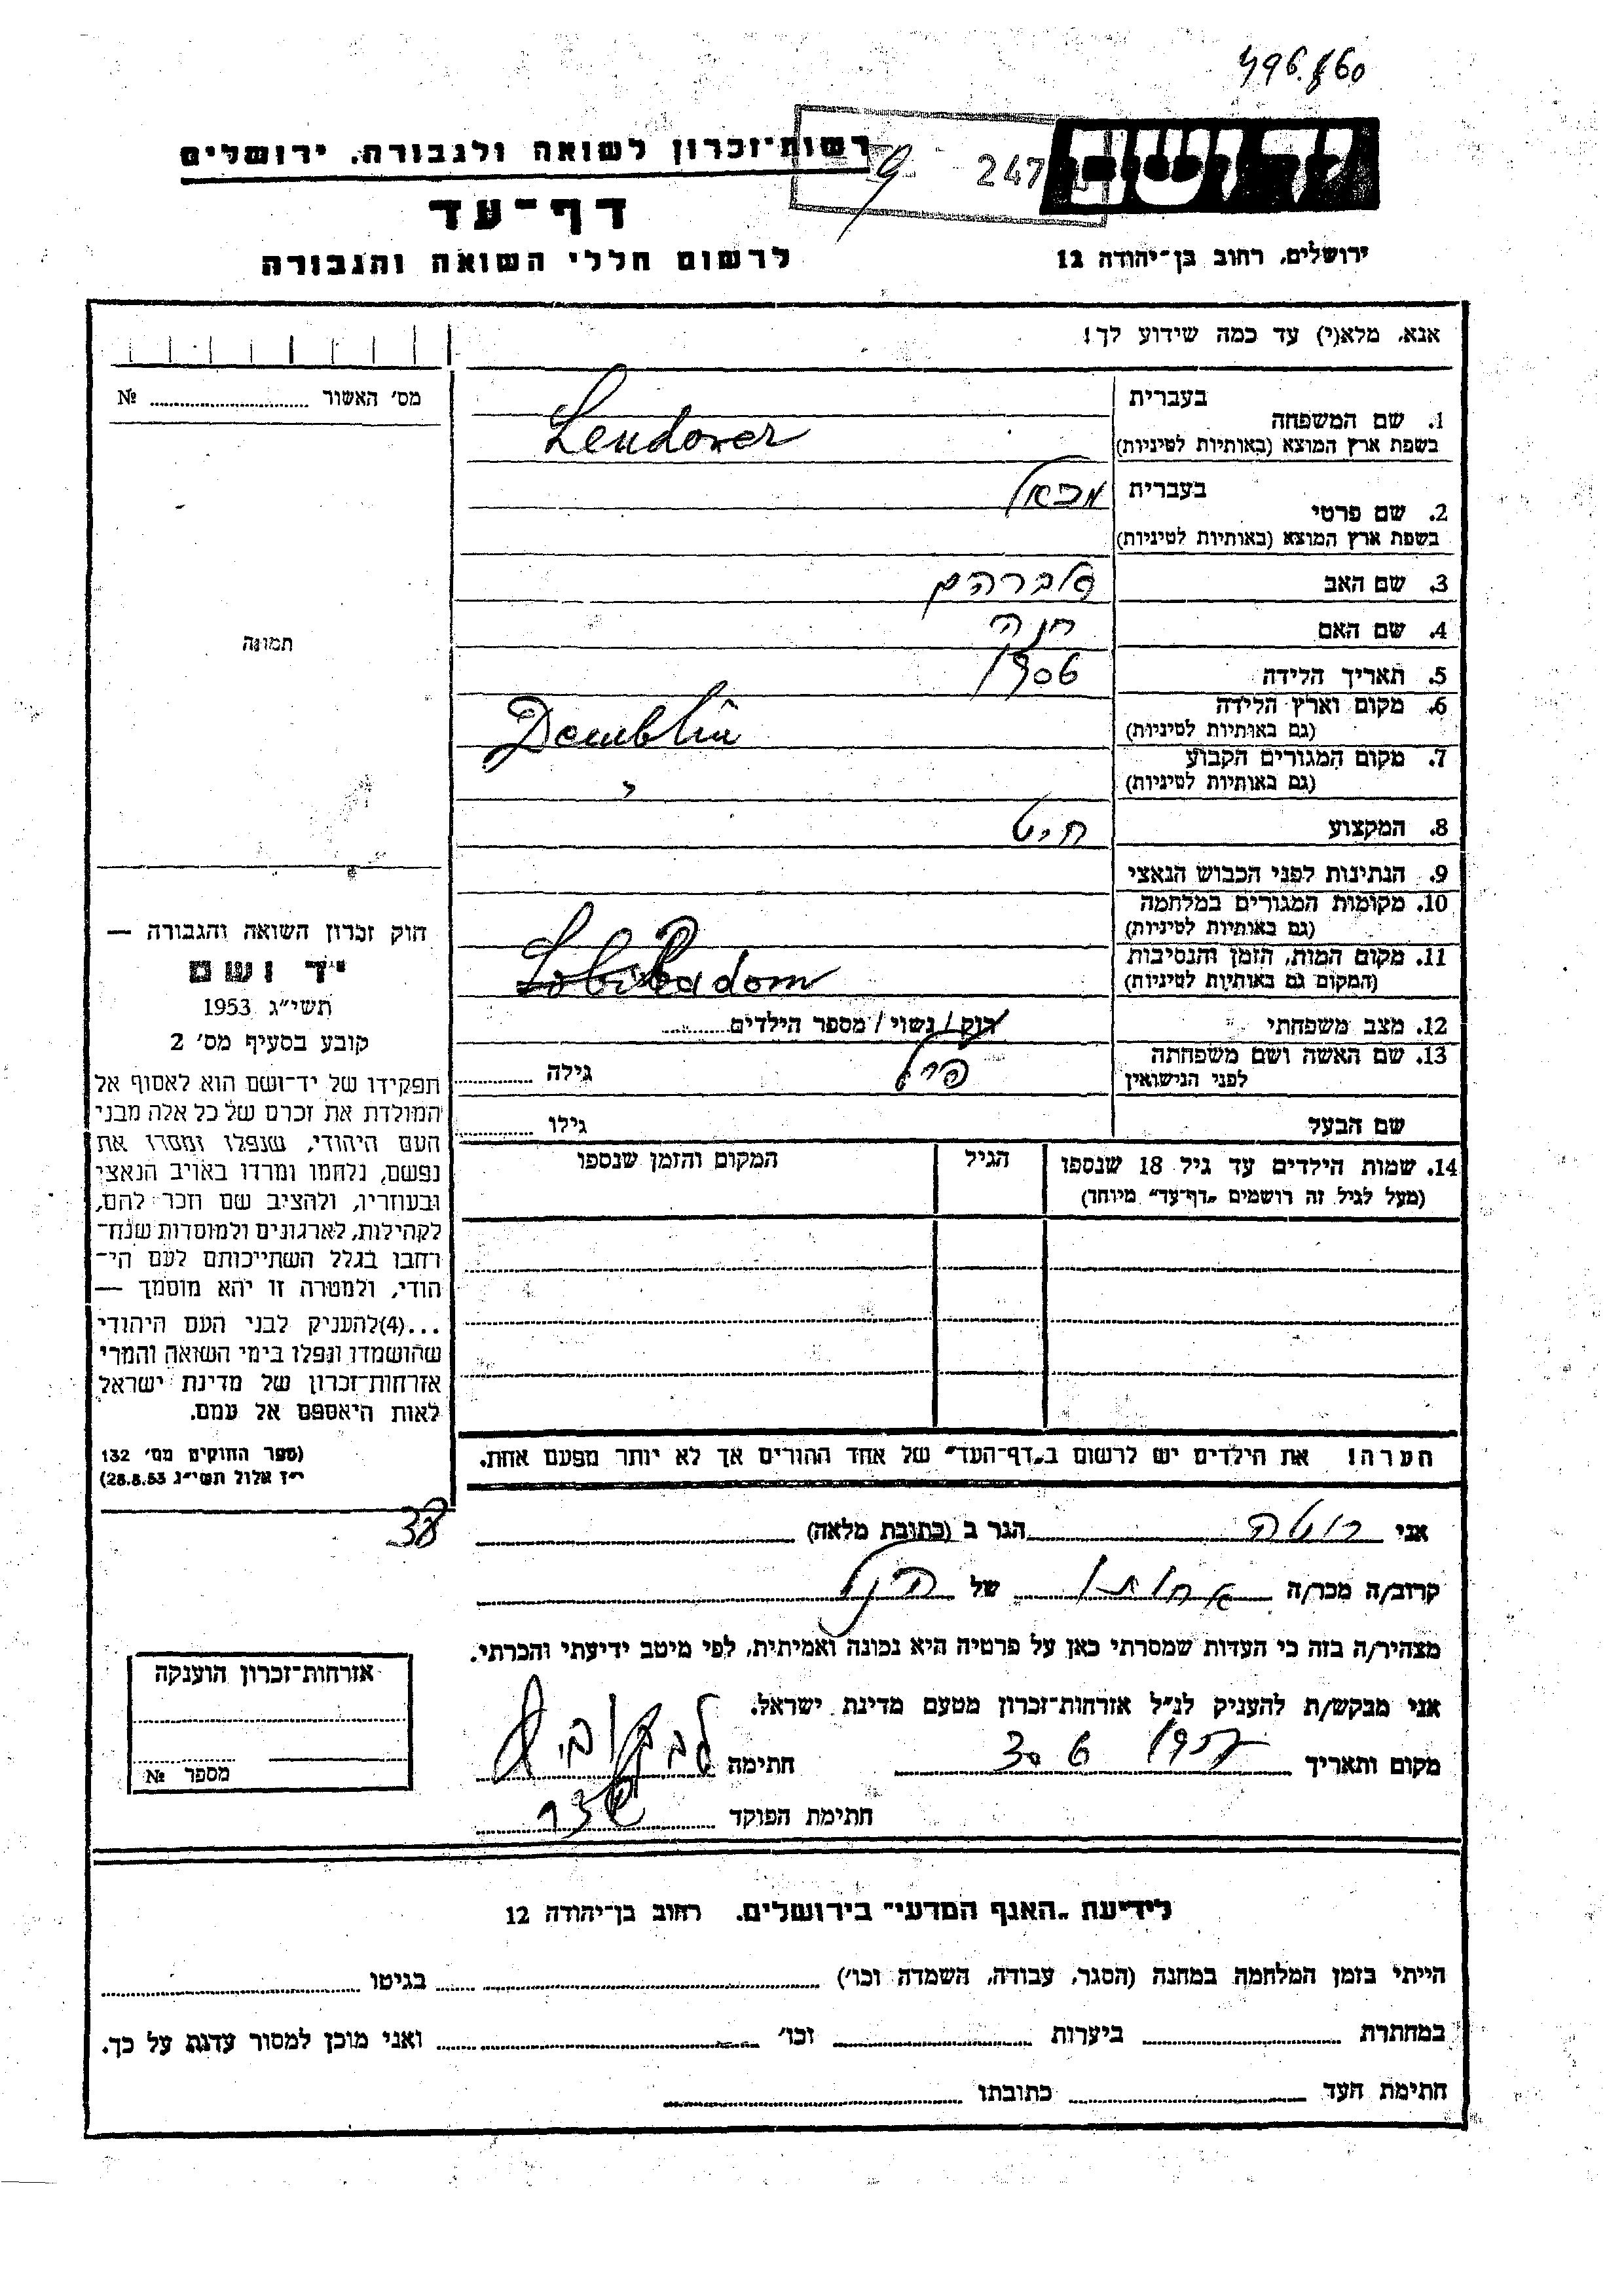 רשות־זכרון לשואה ולגבורה, ירושלים
247
דף־עד
לרשום חללי השואה והגבורה
ירושלים, רחוב בן־יהודה 12
אנא, מלא(י) עד כמה שידוע לך!
מס׳ האשור № 
בעברית
1. שם המשפחה
בשפת ארץ המוצא (באותיות לטיניות) Lendover
בעברית מכאל
2. שם פרטי
בשפת ארץ המוצא (באותיות לטיניות)
3. שם האב אברהם
4. שם האם חנה
5. תאריך הלידה 1906
6. מקום וארץ הלידה Demblin
(גם באותיות לטיניות)
7. מקום המגורים הקבוע
(גם באותיות לטיניות)
8. המקצוע חיט
9. הנתינות לפני הכבוש הנאצי
10. מקומות המגורים במלחמה
(גם באותיות לטיניות)
11. מקום המות, הזמן והנסיבות
(המקום גם באותיות לטיניות) Radom
12. מצב משפחתי רוק / נשוי / מספר הילדים
13. שם האשה ושם משפחתה
לפני הנישואין גילה
שם הבעל גילו
14. שמות הילדים עד גיל 18 שנספו הגיל המקום והזמן שנספו
(מעל לגיל זה רושמים „דף־עד״ מיוחד)
הערה! את הילדים יש לרשום ב„דף־העד״ של אחד ההורים אך לא יותר מפעם אחת.
תמונה
חוק זכרון השואה והגבורה —
יד ושם
תשי״ג 1953
קובע בסעיף מס׳ 2
תפקידו של יד־ושם הוא לאסוף אל
המולדת את זכרם של כל אלה מבני
העם היהודי, שנפלו ומסרו את
נפשם, נלחמו ומרדו באויב הנאצי
ובעוזריו, ולהציב שם וזכר להם,
לקהילות, לארגונים ולמוסדות שנח־
רבו בגלל השתייכותם לעם הי־
הודי, ולמטרה זו יהא מוסמך —
...(4) להעניק לבני העם היהודי
שהושמדו ונפלו בימי השואה והמרי
אזרחות־זכרון של מדינת ישראל
לאות היאספם אל עמם.
(ספר החוקים מס׳ 132
י״ז אלול תשי״ג 28.8.53)
38
אני הגר ב (כתובת מלאה)
קרוב/ה מכר/ה של
מצהיר/ה בזה כי העדות שמסרתי כאן על פרטיה היא נכונה ואמיתית, לפי מיטב ידיעתי והכרתי.
אני מבקש/ת להעניק לנ״ל אזרחות־זכרון מטעם מדינת ישראל.
מקום ותאריך 30 6 1957 חתימה
חתימת הפוקד
אזרחות־זכרון הוענקה
מספר №
לידיעת „האגף המדעי״ בירושלים, רחוב בן־יהודה 12
הייתי בזמן המלחמה במחנה (הסגר, עבודה, השמדה וכו׳) בגיטו
במחתרת ביערות וכו׳ ואני מוכן למסור עדות על כך.
חתימת העד כתובתו